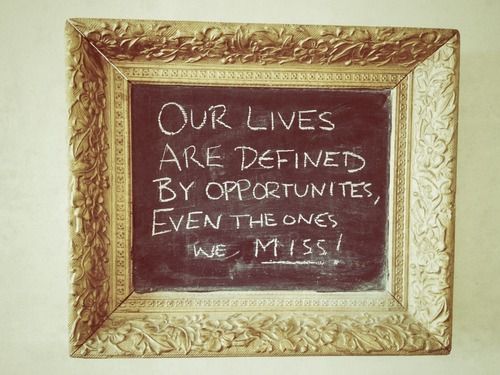 OUR LIVES
ARE DEFINED
BY OPPORTUNITES,
EVEN THE ONES
WE MISS!